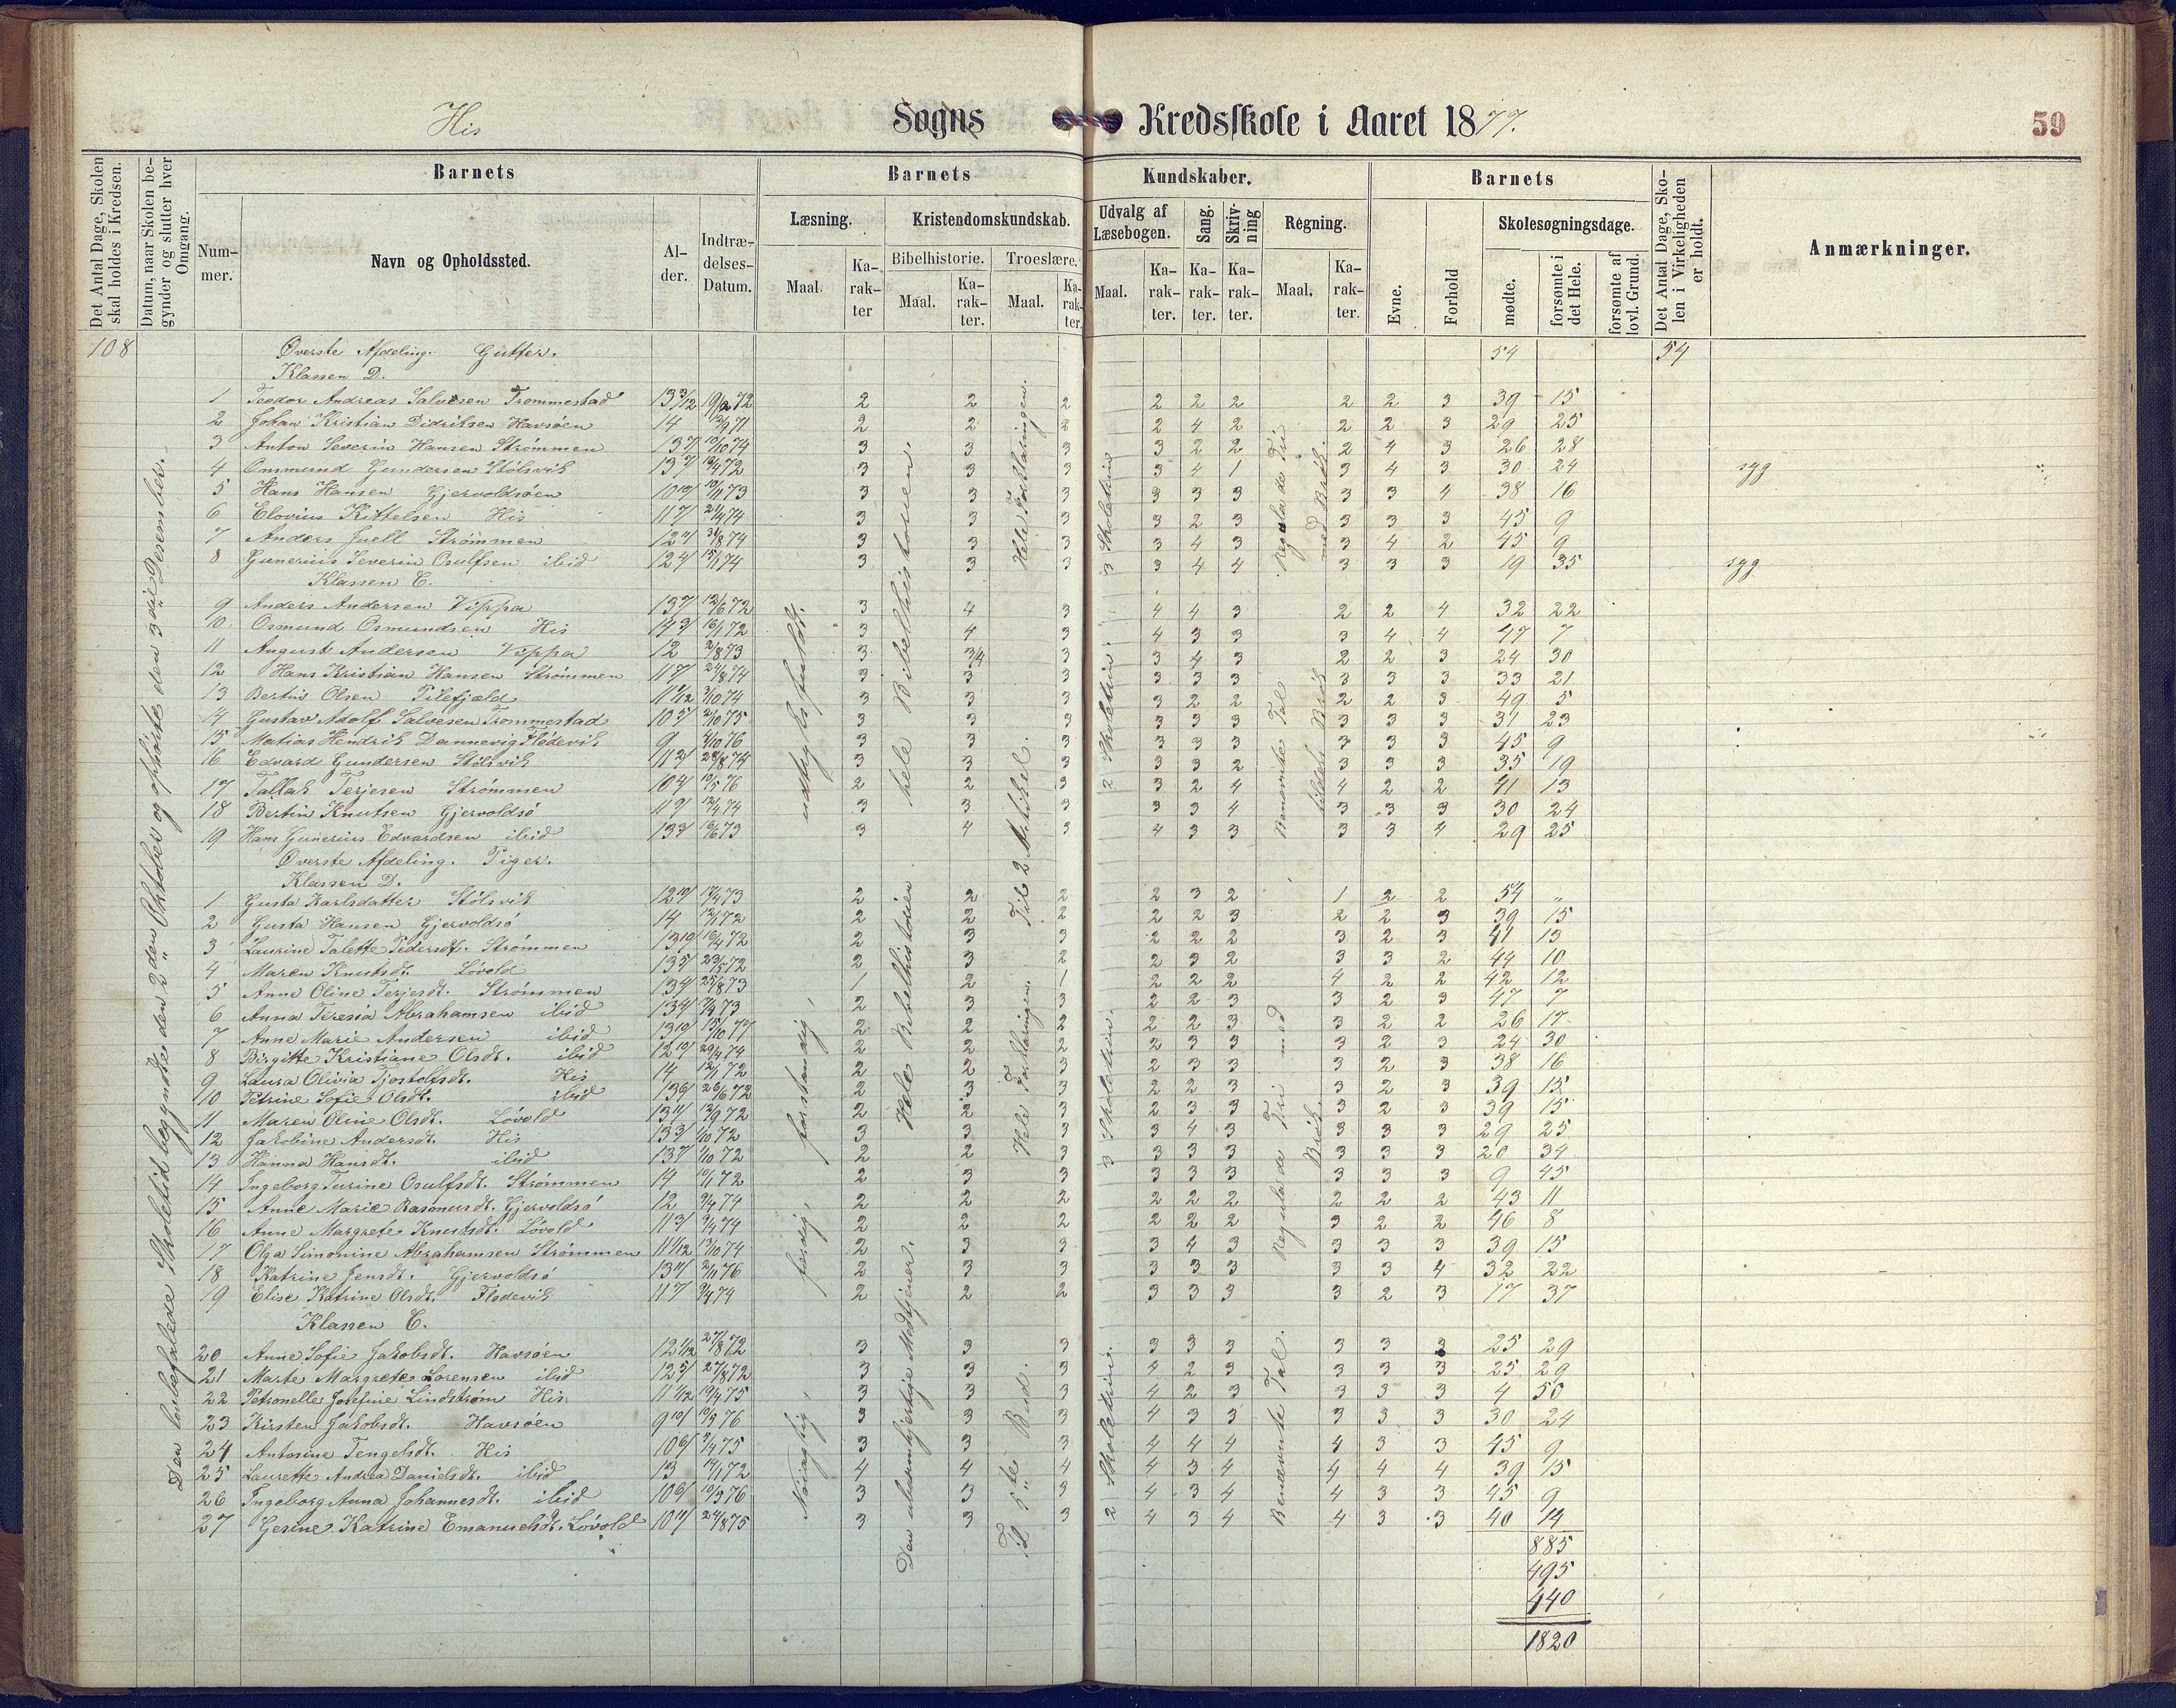 His Sogns Kredsskole i Aaret 1877. 59
Det Antal Dage, Skolen skal holdes i Kredsen.
Datum, naar Skolen begynder og slutter hver Omgang.
Barnets
Nummer.
Navn og Opholdssted.
Alder.
Indtrædelses-Datum.
Barnets Kundskaber.
Læsning.
Maal.
Karakter
Kristendomskundskab.
Bibelhistorie.
Maal.
Karakter.
Troeslære.
Maal.
Karakter.
Udvalg af Læsebogen.
Maal.
Karakter.
Sang.
Karakter.
Skrivning
Karakter.
Regning.
Maal.
Karakter.
Barnets
Evne.
Forhold
Skolesøgningsdage.
mødte.
forsømte i det Hele.
forsømte af lovl. Grund.
Det Antal Dage, Skolen i Virkeligheden er holdt.
Anmærkninger.
108 Øverste Afdeling. Gutter. 54 54
Klassen D.
1 Teodor Andreas Salvesen Trommestad 2 2 2 2 2 2 2 2 3 39 15
2 Johan Kristian Didriksen Havsøen 14 2 2 2 2 4 2 2 2 3 29 25
3 Anton Severin Hansen Strømmen 3 3 3 3 2 2 2 4 3 26 28
4 Ommund Gundersen Stølsvik 3 3 3 3 4 1 3 4 3 30 24 syg
5 Hans Hansen Gjervoldsøen 3 3 3 3 3 3 3 3 4 38 16
6 Elovius Kittelsen His 3 3 3 3 2 3 3 3 3 45 9
7 Anders Juell Strømmen 3 3 3 3 4 3 3 4 2 45 9
8 Gunerius Severin Osulfsen ibid 3 3 3 3 4 4 3 3 3 19 35 syg
Klassen C.
9 Anders Andersen Vippa 3 4 3 4 4 3 2 2 4 32 22
10 Osmund Osmundsen His 3 4 3 4 3 3 3 4 4 47 7
11 August Andersen Vippa 12 3 3/4 3 3 4 3 2 2 3 24 30
12 Hans Kristian Hansen Strømmen 3 3 3 3 3 3 3 3 3 33 21
13 Bertin Olsen Pilefjæld 3 3 3 3 2 2 2 2 3 49 5
14 Gustav Adolf Salvesen Trommestad 3 3 3 3 3 3 3 3 3 31 23
15 Matias Hendrik Dannevig Flødevik 9 3 3 3 3 3 3 3 3 3 45 9
16 Edvard Gundersen Stølsvik 3 3 3 3 3 2 3 3 3 35 19
17 Tallak Terjesen Strømmen 2 2 3 3 2 4 4 2 2 41 13
18 Bertin Knutsen Gjervoldsø 3 3 3 3 3 4 3 3 3 30 24
19 Hans Gunerius Edvardsen ibid 3 4 3 4 3 3 3 3 4 29 25
Øverste Afdeling. Piger.
Klassen D.
1 Gusta Karlsdatter Stølsvik 2 2 2 2 3 2 1 2 2 54 "
2 Gusta Hansen Gjervoldsø 14 2 2 2 2 2 3 2 2 3 39 15
3 Laurine Talette Pedersdt. Strømmen 2 3 3 2 2 2 3 2 3 41 13
4 Maren Knutsdt. Løvold 2 3 2 2 3 2 3 3 2 44 10
5 Anne Oline Terjesdt. Strømmen 1 2 1 2 2 2 4 2 2 42 12
6 Anna Teresia Abrahamsen ibid 2 3 3 2 2 3 3 2 3 47 7
7 Anne Marie Andersen ibid 2 2 2 2 2 3 3 2 2 26 17
8 Birgitte Kristiane Olsdt. ibid 2 2 2 2 3 3 3 2 3 24 30
9 Laura Olivia Tjostolfsdt. His 14 2 2 3 2 3 3 3 2 3 38 16
10 Petrine Sofie Olsdt. ibid 2 3 3 2 2 3 3 2 3 39 15
11 Maren Oline Olsdt. Løvold 2 2 3 2 3 3 3 2 3 39 15
12 Jakobine Andersdt. His 3 3 3 3 4 3 3 3 3 29 25
13 Hanna Hansdt. ibid 2 2 3 3 3 3 3 3 3 20 34
14 Ingeborg Turine Osulfsdt. Strømmen 14 2 3 3 3 3 3 3 3 3 9 45
15 Anne Marie Rasmusdt. Gjervoldsø 12 2 2 2 2 2 2 2 2 2 43 11
16 Anne Margrete Knutsdt. Løvold 2 2 2 2 2 2 3 2 2 46 8
17 Olga Simonine Abrahamsen Strømmen 2 3 3 3 4 3 3 3 3 39 15
18 Katrine Jensdt. Gjervoldsø 2 3 3 3 3 3 3 3 4 32 22
19 Elise Katrine Olsdt. Flødevik 2 2 2 3 3 3 3 2 3 17 37
Klassen C.
20 Anne Sofie Jakobsdt. Havsøen 3 3 3 3 3 3 3 3 3 25 29
21 Marte Margrete Lorensen ibid 3 3 3 4 2 3 3 3 3 25 29
22 Petronelle Josefine Lindstrøm His 3 3 3 4 2 3 3 3 3 4 50
23 Kirsten Jakobsdt. Havsøen 3 3 3 4 3 3 3 3 3 30 24
24 Antonine Tengelsdt. His 3 3 3 4 4 4 4 3 3 45 9
25 Laurette Andrea Danielsdt. ibid 13 4 4 4 4 3 4 4 4 4 39 15
26 Ingeborg Anna Johannesdt. ibid 3 3 3 4 3 4 4 3 3 45 9
27 Gesine Katrine Emanuelsdt. Løvold 3 3 3 4 3 4 4 3 3 40 14
885
495
440
1820
Den lovbefalede Skoletid begyndte den 2den Oktober og ophørte den 3die Desember.
Nøiagtig, færdig, forstandig, udtryksfuldt.
hele Bibelhistorien.
Hele Bibelhistorien
Den ubarmhjertige Medtjener.
Hele Forklaringen.
Til 2 Artikel.
Hele Forklaringen.
Til 5te Bud.
3 Skoletrin
2 Skoletrin.
3 Skoletrin.
2 Skoletrin.
Regula de Tri med Brøk.
Benævnte Tal Brøk
Regula de Tri med Brøk.
Benævnte Tal.